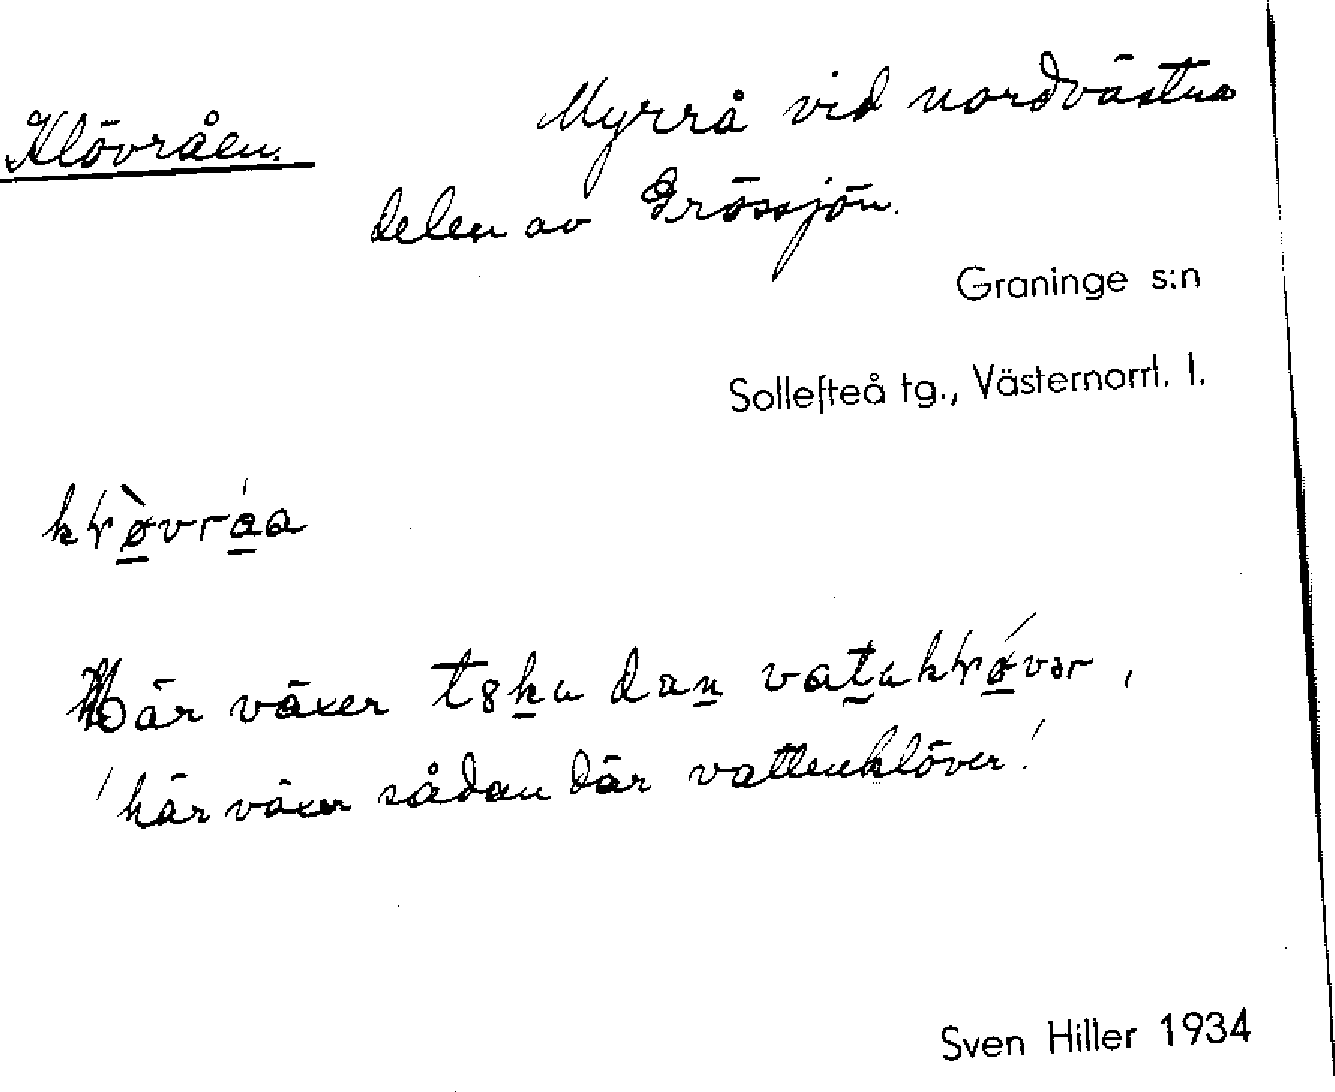 Klövråen.
Myrrå vid nordvästra
delen av Grössjön.
Graninge s:n
Sollefteå tg., Västernorrl. l.
Här växer dan
'här växer sådan där vattenklöver'
Sven Hiller 1934